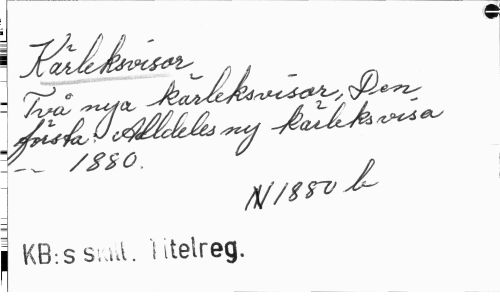 Kärleksvisor
Två nya kärleksvisor, Den
första: Alldeles ny kärleksvisa
-- 1880.
N 1880 b
KB:s skill. Titelreg.